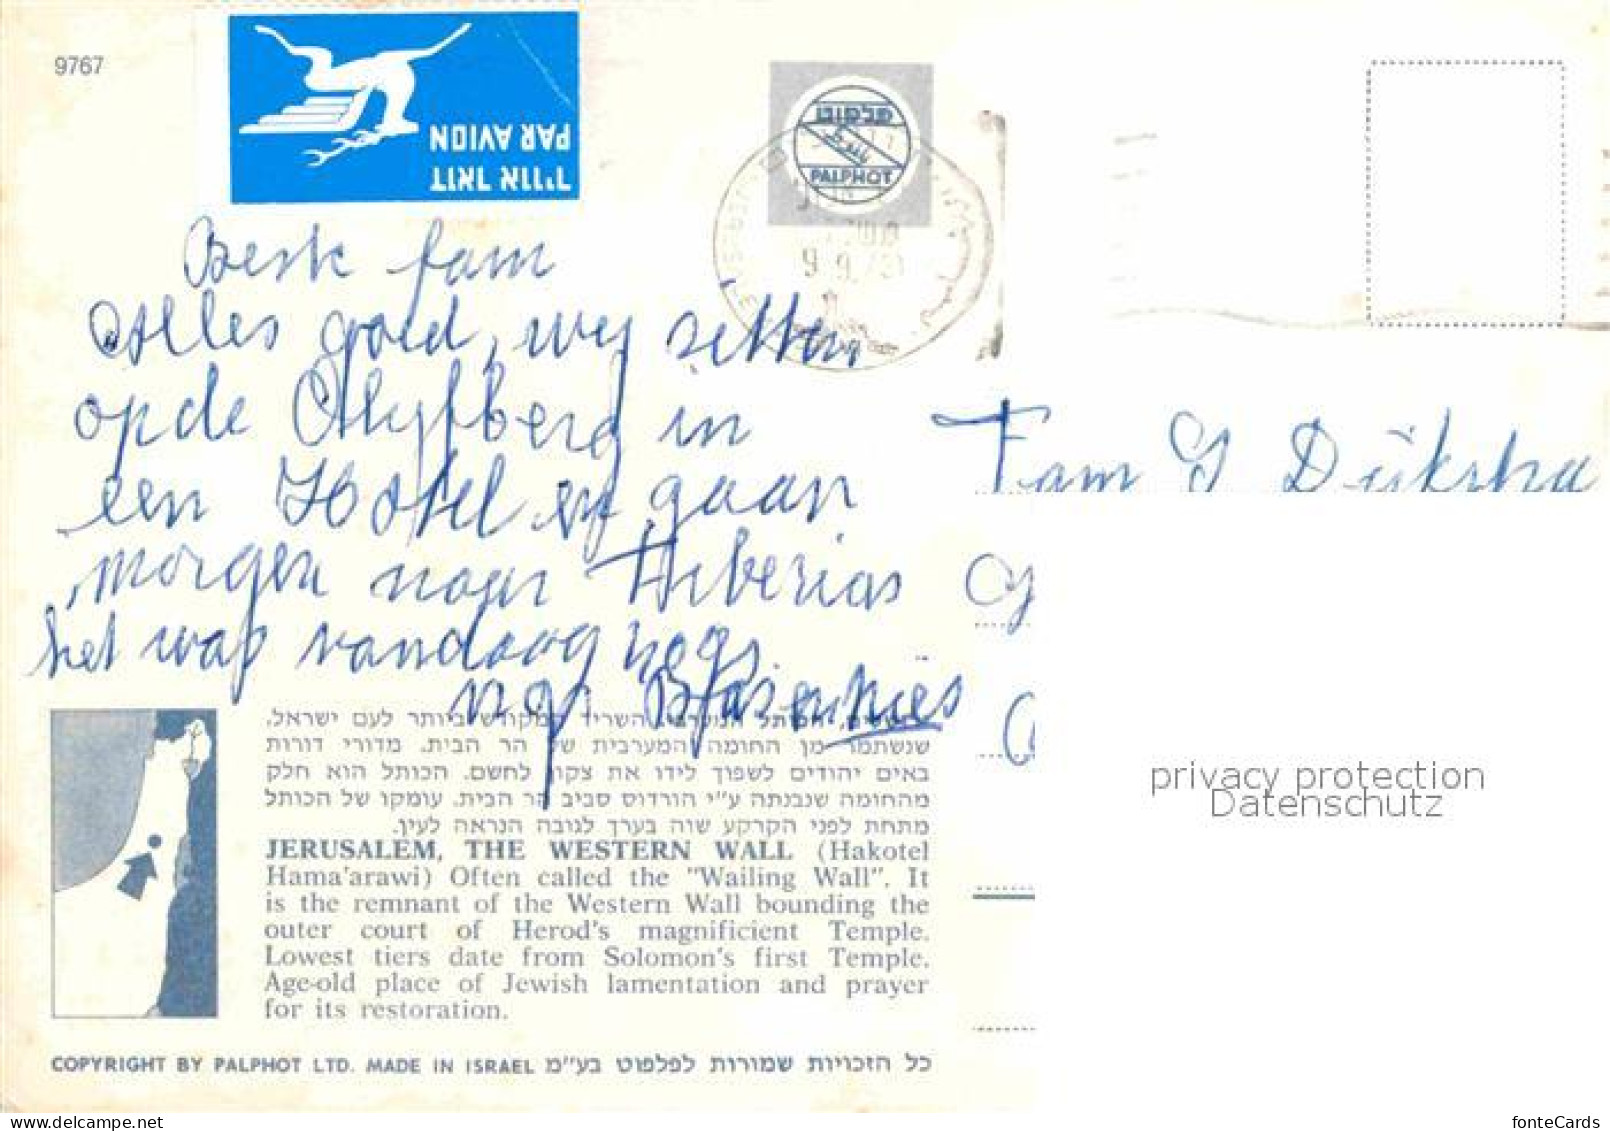 9767
דואר אויר
PAR AVION
פלפוט
PALPHOT
ISRAEL
9.9.73
Beste fam
Alles goed, wij zitten
op de Olijfberg in
een Hotel en gaan
morgen naar Tiberias
het was vandaag
Fam Dijkstra
המערבי, השריד המקודש ביותר לעם ישראל,
שנשתמר מן החומה המערבית של הר הבית. מדורי דורות
באים יהודים לשפוך לידו את צקון לחשם. הכותל הוא חלק
מהחומה שנבנתה ע״י הורדוס סביב הר הבית. עומקו של הכותל
מתחת לפני הקרקע שוה בערך לגובה הנראה לעין.
JERUSALEM, THE WESTERN WALL (Hakotel
Hama'arawi) Often called the "Wailing Wall". It
is the remnant of the Western Wall bounding the
outer court of Herod's magnificient Temple.
Lowest tiers date from Solomon's first Temple.
Age-old place of Jewish lamentation and prayer
for its restoration.
COPYRIGHT BY PALPHOT LTD. MADE IN ISRAEL כל הזכויות שמורות לפלפוט בע״מ
privacy protection
Datenschutz
fonteCards